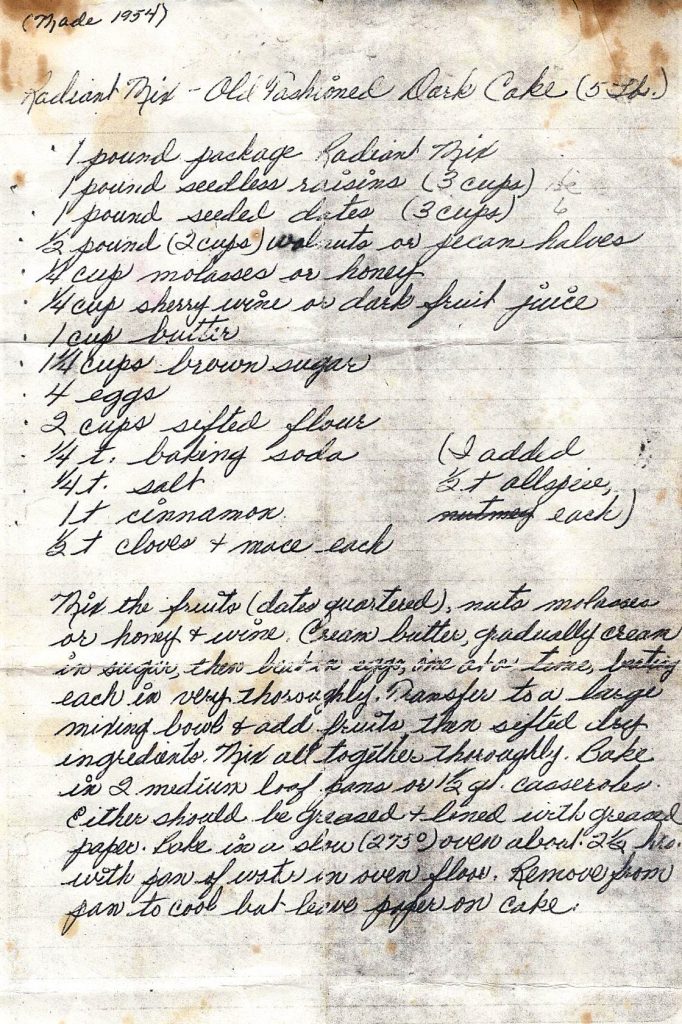 (Made 1954)
Radiant Mix - Old Fashioned Dark Cake (5 Lb.)
1 pound package Radiant Mix
1 pound seedless raisins (3 cups)
1 pound seeded dates (3 cups)
½ pound (2 cups) walnuts or pecan halves
¼ cup molasses or honey
¼ cup sherry wine or dark fruit juice
1 cup butter
1¼ cups brown sugar
4 eggs
2 cups sifted flour
¼ t. baking soda (I added
¼ t. salt ½ t allspice,
1 t cinnamon nutmeg each)
½ t cloves + mace each
Mix the fruits (dates quartered), nuts molasses
or honey + wine. Cream butter, gradually cream
in sugar, then beat in eggs, one at a time, beating
each in very thoroughly. Transfer to a large
mixing bowl & add fruits, then sifted dry
ingredients. Mix all together thoroughly. Bake
in 2 medium loaf pans or 1½ qt. casseroles.
Either should be greased + lined with greased
paper. Bake in a slow (275°) oven about 2½ hrs.
with pan of water in oven floor. Remove from
pan to cool but leave paper on cake.